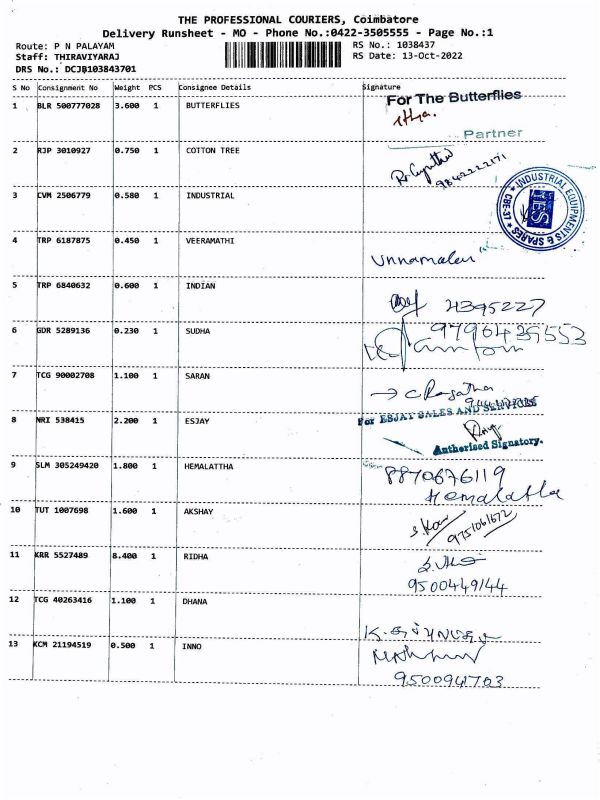 THE PROFESSIONAL COURIERS, Coimbatore
Delivery Runsheet - MO - Phone No.:0422-3505555 - Page No.:1
Route: P N PALAYAM RS No.: 1038437
Staff: THIRAVIYARAJ RS Date: 13-Oct-2022
DRS No.: DCJB103843701
S No Consignment No Weight PCS Consignee Details Signature
For The Butterflies
1 BLR 500777028 3.600 1 BUTTERFLIES
Partner
2 RJP 3010927 0.750 1 COTTON TREE
9842222171
3 CVM 2506779 0.580 1 INDUSTRIAL
INDUSTRIAL EQUIPMENTS & SPARES * CBE-37 *
IES
4 TRP 6187875 0.450 1 VEERAMATHI
Unnamalai
5 TRP 6840632 0.600 1 INDIAN
4395227
6 GDR 5289136 0.230 1 SUDHA 9796435553
7 TCG 90002708 1.100 1 SARAN
For ESJAY SALES AND SERVICES
8 NRI 538415 2.200 1 ESJAY
Authorised Signatory.
9 SLM 305249420 1.800 1 HEMALATTHA 8870676119
Hemalatha
10 TUT 1007698 1.600 1 AKSHAY
9751061672
11 KRR 5527489 8.400 1 RIDHA
9500449144
12 TCG 40263416 1.100 1 DHANA
13 KCM 21194519 0.500 1 INNO
9500941703